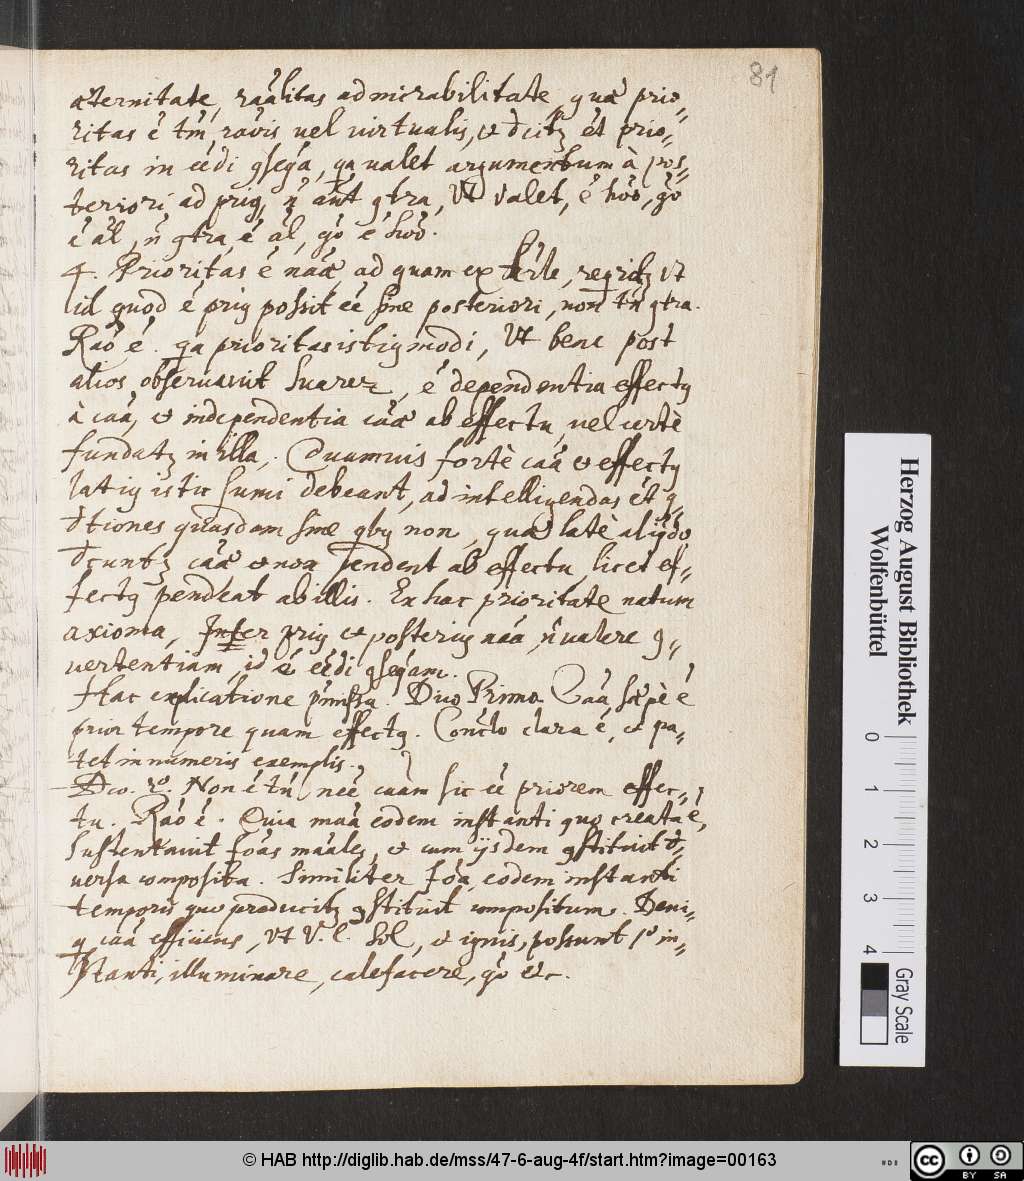 81
æternitate, raâlitas admirabilitate, quæ prio„
ritas ê tm̃ raõis vel virtualis, et dcitꝫ ẽt prio„
ritas in eẽdi ↄseq̃a, q̃a valet argumentum à pos„
teriori ad priꝰ, ñ aũt ↄtra, Vt valet, ẽ hõo, gõ
ẽ aĩl, ñ ↄtra, ẽ aĩl, gõ ẽ hõo.
4. Prioritas ẽ nãæ ad quam ex , reqrit̃ꝫ vt
id quod ẽ priꝰ possit eẽ sine posteriori, non tñ ↄtra.
Raõ ẽ. q̃a prioritas istiꝰmodi, Vt bene post
alios observavit Suarez, ẽ dependentia effectꝰ
à caã, et independentia caæ̃ ab effectu, vel certè
fundatꝫ in illa, . Quamvis fortè caã et effectꝰ
latiꝰ istic sumi debeant, ad intelligendas ẽt ↄ„
dtiones quasdam sine qbꝰ non, quæ latè aliq̃do
dcuntꝫ caæ̃ et non pendent ab effectu, licet ef„
fectꝰ pendeat ab illis. Ex hac prioritate natum
axioma, Inter priꝰ et posteriꝰ naã, ñ valere ↄ„
vertentiam, id ẽ eẽdi ↄseq̃am.
Hac explicatione p̃missa. Dico Primo. Caã sæpè ẽ
prior tempore quam effectꝰ. Conclo clara ẽ, et pa„
tet in numeris exemplis.
Dco. 2º. Non ẽ tñ neẽ caam sic eẽ priorem effec„
tu. Raõ ẽ. Quia maã eodem instanti quo creata ẽ,
sustentavit foãs maãles, et cum ijsdem ↄstituit
versa composita. Similiter foã, eodem instanti
temporis quo producitꝫ ↄstituit compositum. Deni„
q caã efficiens, Vt V. C. Sol, et ignis, possunt pº in„
stanti, illuminare, calefacere, gõ etc.
Herzog August Bibliothek
Wolfenbüttel
0
1
2
3
4
Gray Scale
© HAB http://diglib.hab.de/mss/47-6-aug-4f/start.htm?image=00163
cc
BY
SA